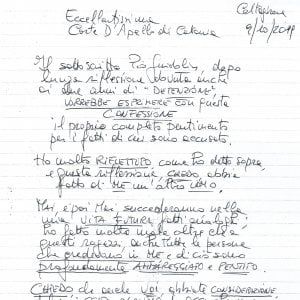 Eccellentissima
Corte D'Apello di Catania
9/10/2019
Il sottoscritto Pio Guidolin, dopo
lunga riflessione dovuta anche
ai due anni di "DETENZIONE"
VORREBBE ESPORRE con questa
CONFESSIONE
il proprio completo pentimento
per i fatti di cui sono accusato.
Ho molto RIFLETTUTO come Ho detto sopra
e questa riflessione, CREDO, abbia
fatto di ME un'altro UOMO.
Mai, e poi Mai succederanno nella
mia VITA FUTURA fatti analoghi
Ho fatto molto male oltre che a
questi ragazzi, anche tutte le persone
che credevano in ME, e di ciò sono
profondamente AMAREGGIATO e PENTITO.
CHIEDO che anche voi abbiate CONSIDERAZIONE